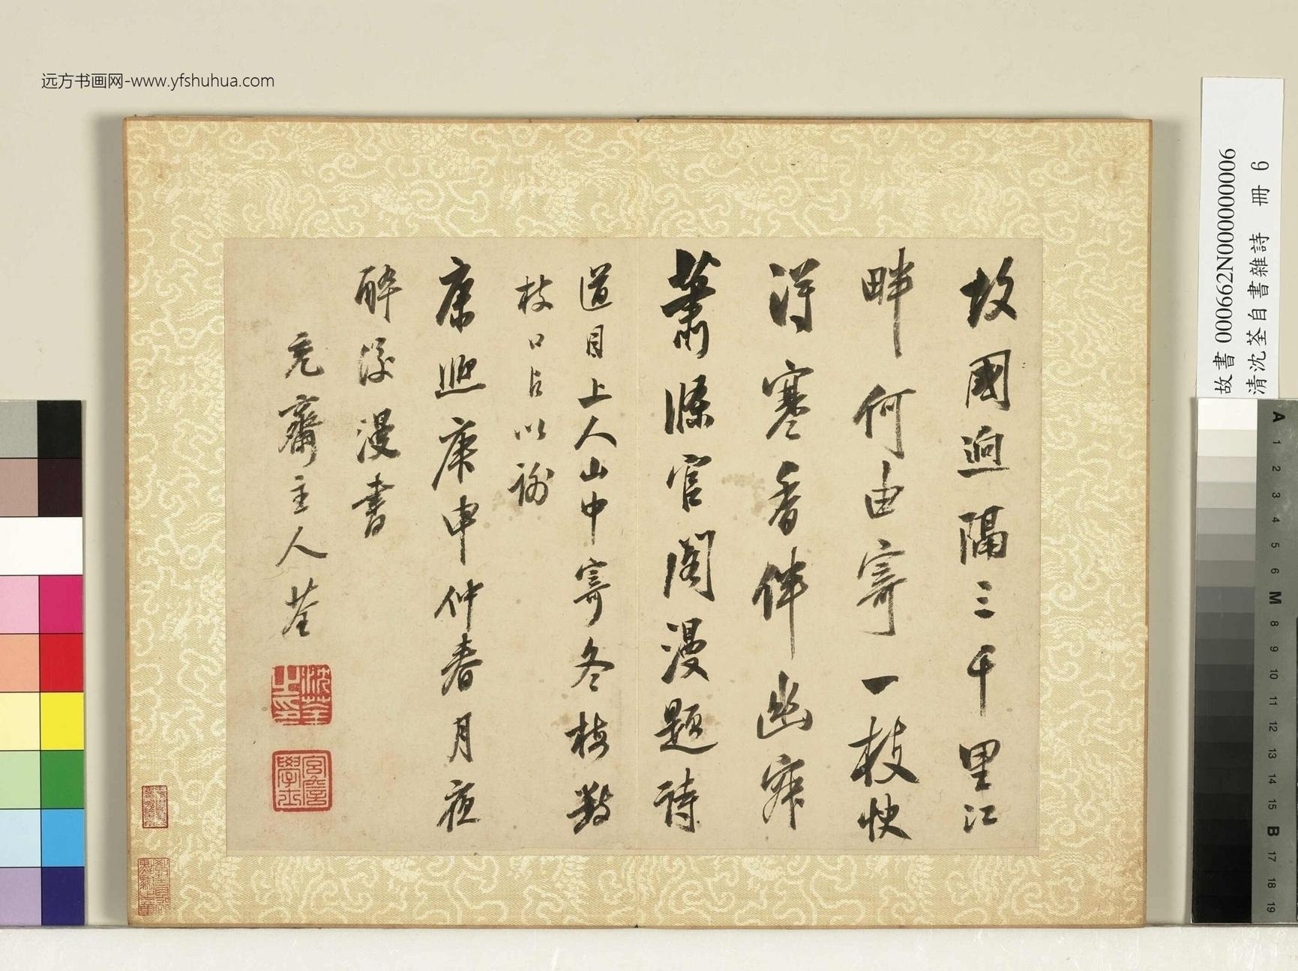 远方书画网-www.yfshuhua.com
故國迥隔三千里江
畔何由寄一枝快
得寒香伴幽寂
蕭條官閣漫題詩
道目上人山中寄冬梅數
枝口占以謝
康熙庚申仲春月夜
醉後漫書
充齋主人荃
沈荃之印
宮詹學士
故書 000662N000000006
清沈荃自書雜詩 冊 6
A 1 2 3 4 5 6 M 8 9 10 11 12 13 14 15 B 17 18 19